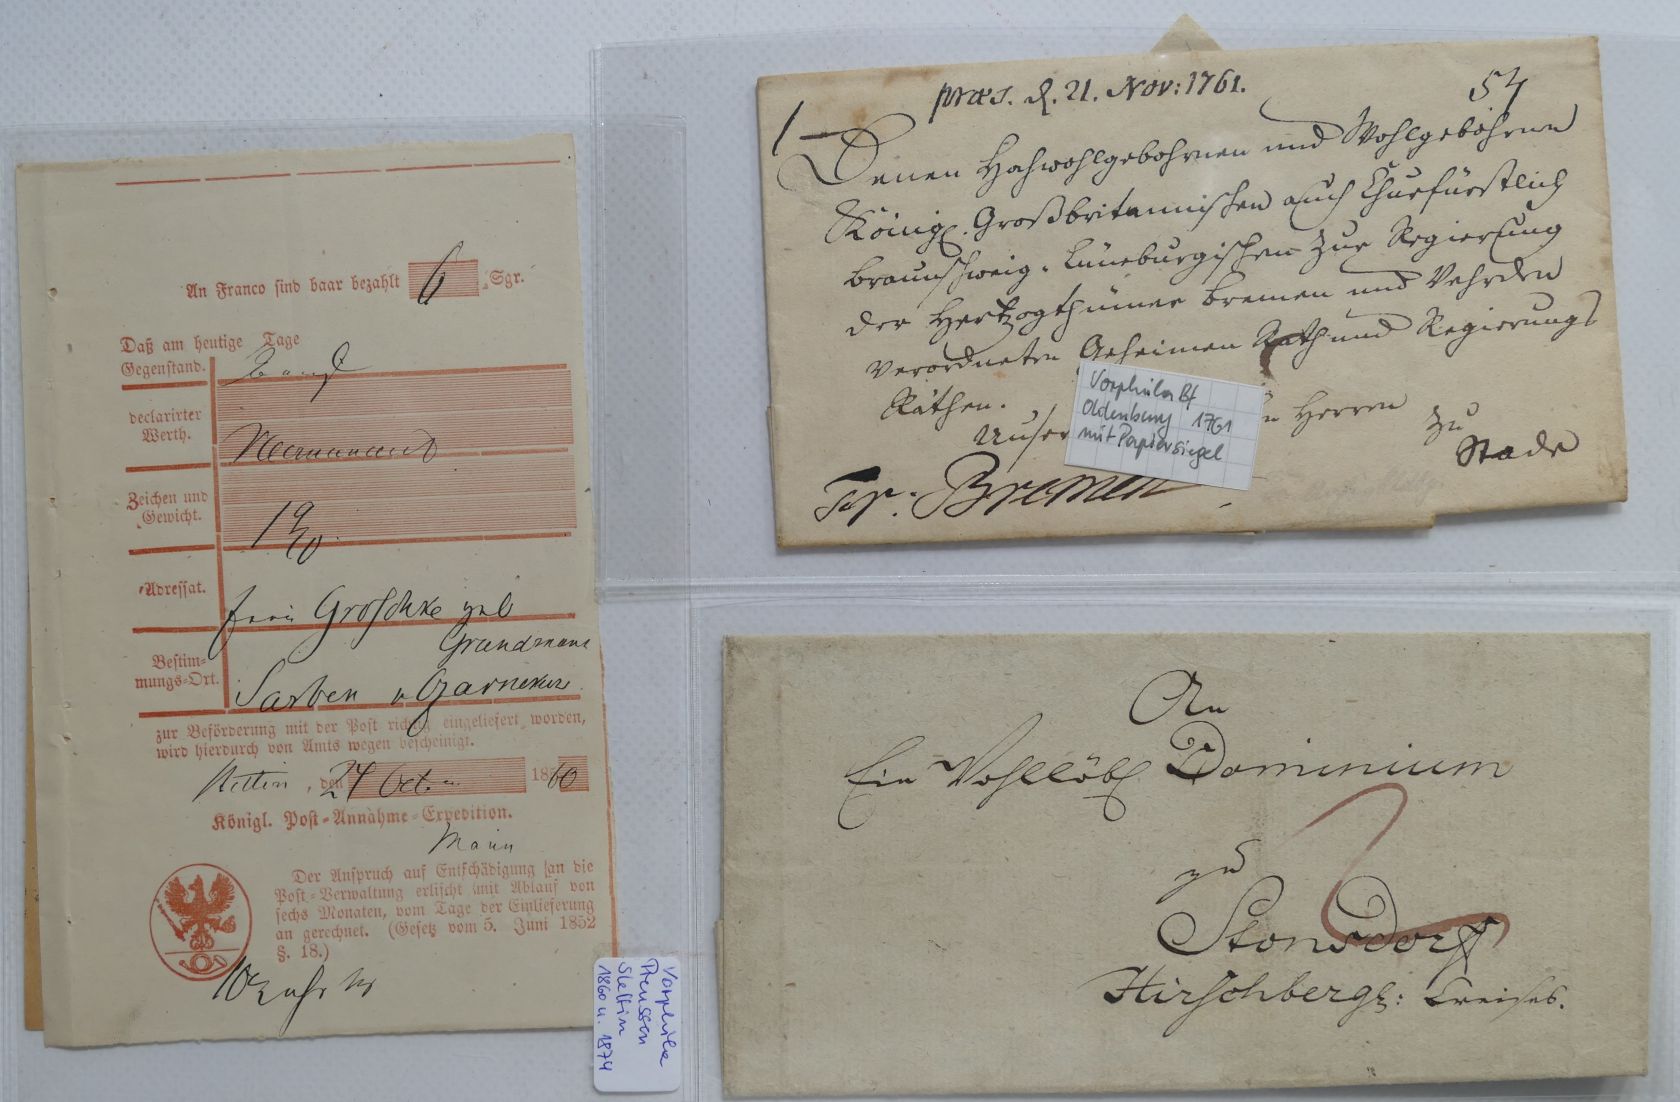 An Franco sind baar bezahlt 6 Sgr.
Daß am heutige Tage
Gegenstand.
declarirter
Werth.
Zeichen und
Gewicht.
Adressat.
Frau Groschke geb
Grundmann
Bestim-
mungs-Ort.
Sarben
zur Beförderung mit der Post richtig eingeliefert worden,
wird hierdurch von Amts wegen bescheinigt.
Stettin, den 24 Oct 1860
Königl. Post-Annahme-Expedition.
Mann
Der Anspruch auf Entschädigung an die
Post-Verwaltung erlischt mit Ablauf von
sechs Monaten, vom Tage der Einlieferung
an gerechnet. (Gesetz vom 5. Juni 1852
§. 18.)
Vorphila
Preussen
Stettin
1860 u. 1874
præs. d. 21. Nov: 1761.
54
Denen Hochwohlgebohrnen und Wohlgebohrnen
Königl. Großbritannischen auch Churfürstlich
Braunschweig-Lüneburgischen zur Regierung
der Hertzogthümer Bremen und Vehrden
verordneten Geheimen Rath und Regierungs
Räthen.
Unser
Herren
zu
Stade
Fr: Bremen
Vorphila Bf
Oldenburg 1761
mit Papiersiegel
An
Ein Wohllöbl Dominium
zu
Stonsdorff
Hirschbergs: Creises.